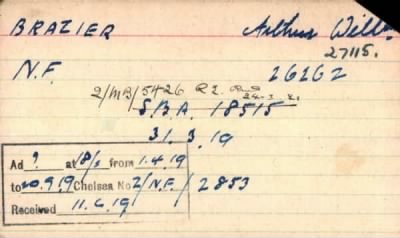 BRAZIER Arthur Will
27115.
N.F. 26262
2/MB/5426 R2.
S.B.A. 18515
31.3.19
Ad ? at 18/ from 1.4.19
to 20.9.19 Chelsea No 2/N.F./2853
Received 11.6.19